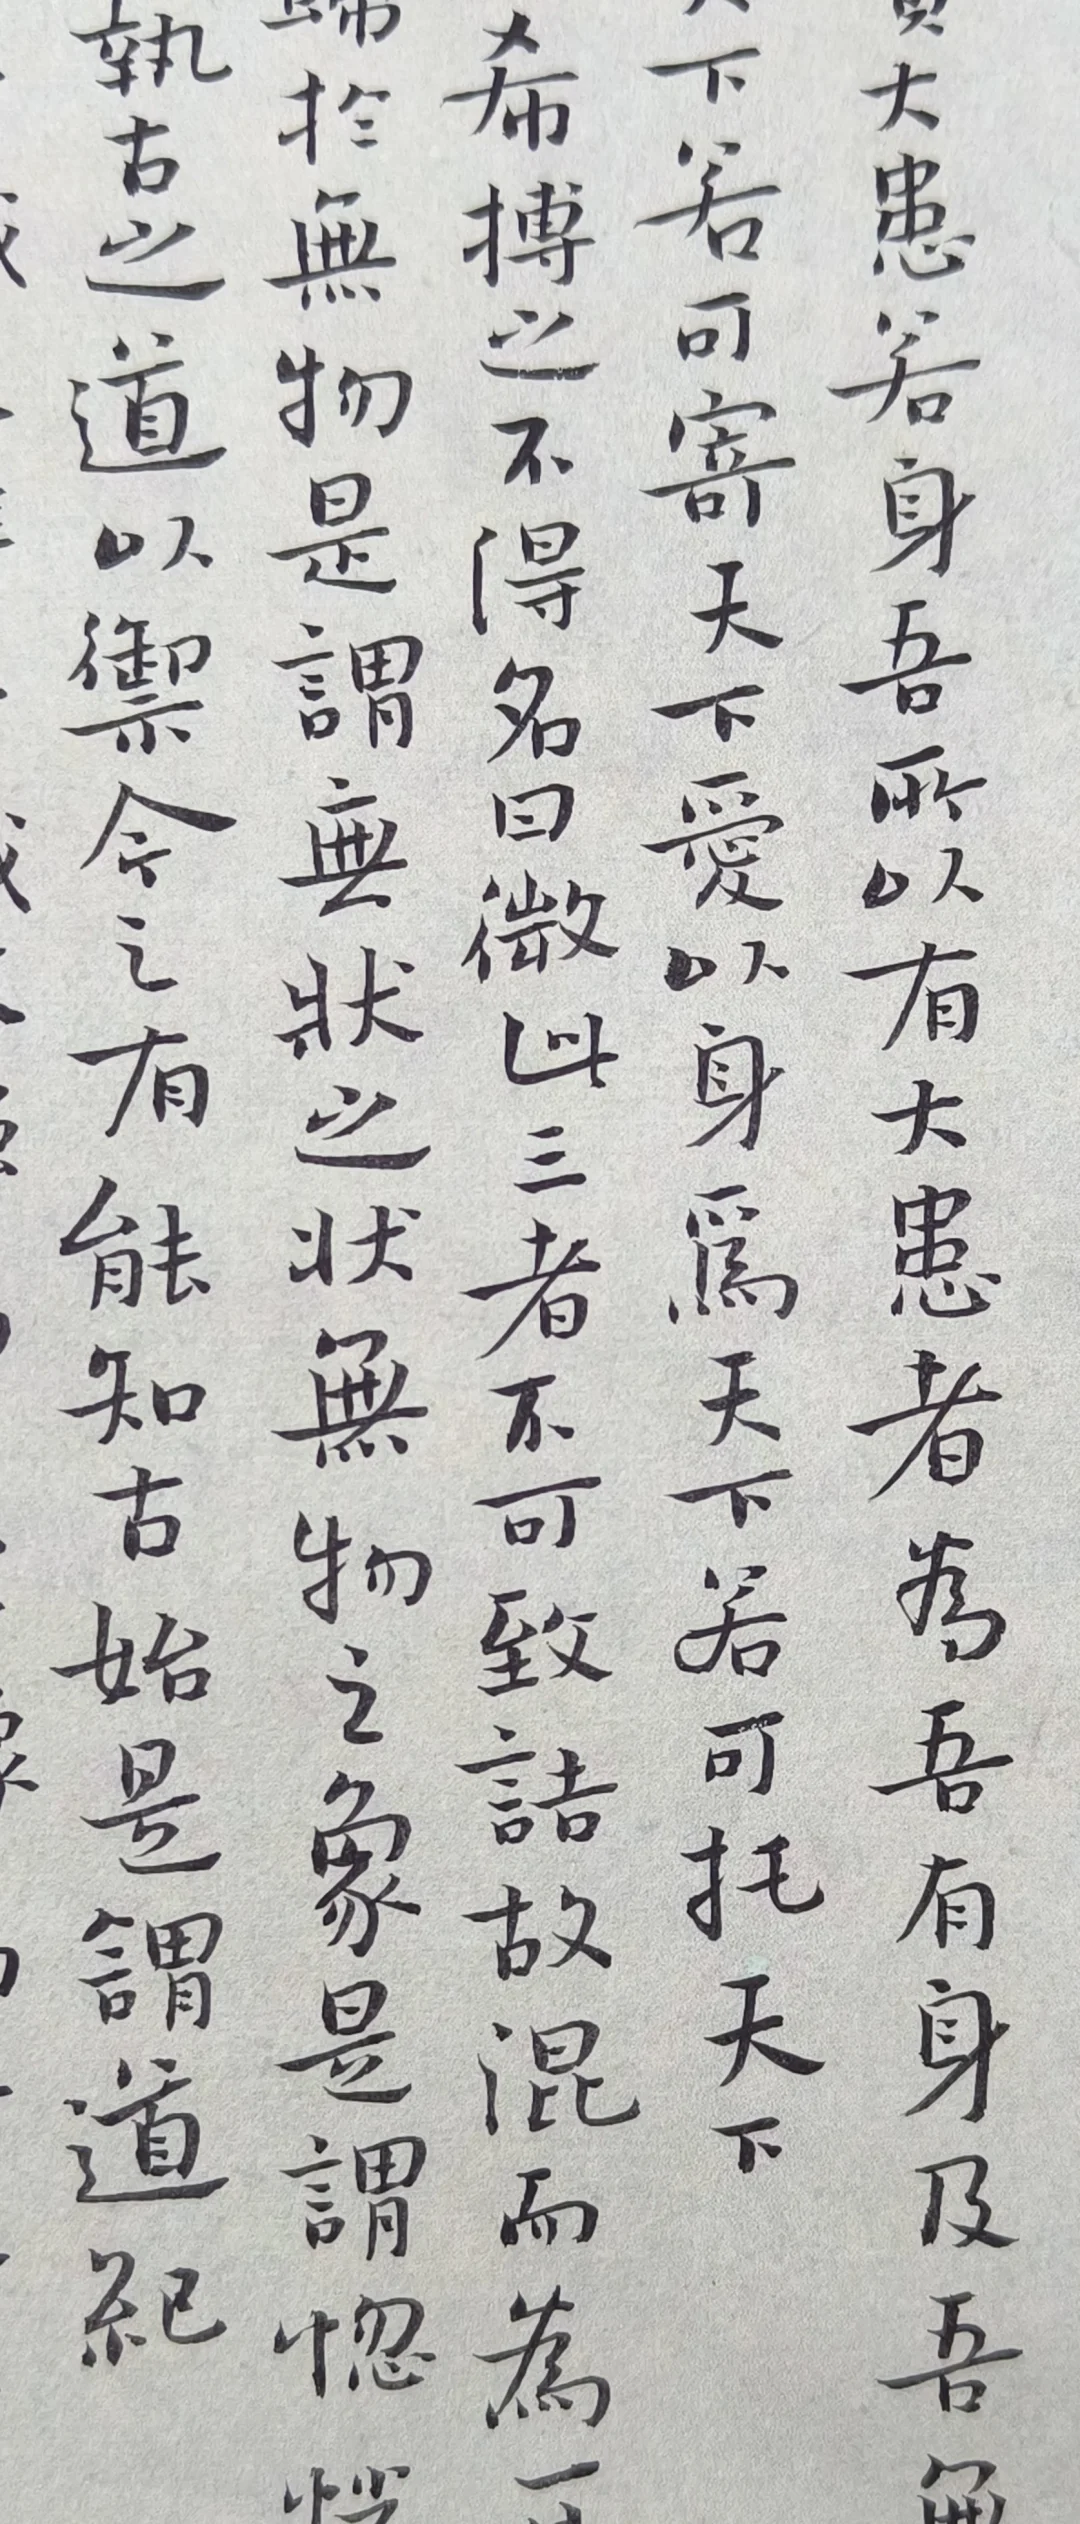 大患若身吾所以有大患者為吾有身及吾無
下若可寄天下愛以身為天下若可托天下
希搏之不得名曰微此三者不可致詰故混而為一
歸於無物是謂無狀之狀無物之象是謂惚恍
執古之道以御今之有能知古始是謂道紀